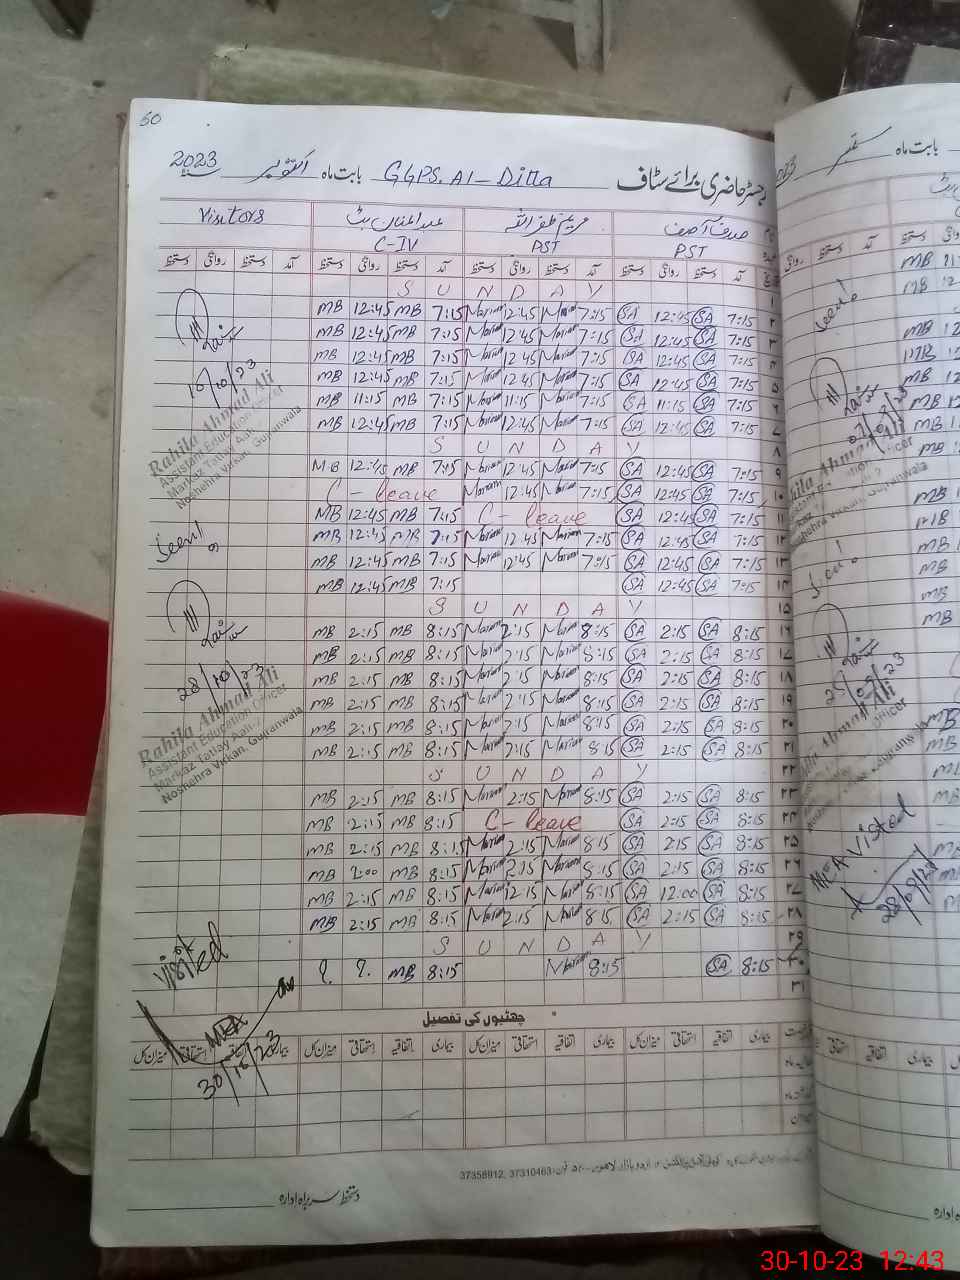 50
رجسٹر حاضری برائے سٹاف GGPS. Al-Ditta بابت ماہ اکتوبر 2023
صدف آصف مریم ظفر اللہ عبدالمنان بٹ Visitors
PST PST C-IV
آمد دستخط روانگی دستخط آمد دستخط روانگی دستخط آمد دستخط روانگی دستخط آمد دستخط روانگی دستخط
۱ S U N D A Y
MB 12:45 MB 7:15 Mariam 12:45 Mariam 7:15 SA 12:45 SA 7:15 ۲
MB 12:45 MB 7:15 Mariam 12:45 Mariam 7:15 SA 12:45 SA 7:15 ۳
MB 12:45 MB 7:15 Mariam 12:45 Mariam 7:15 SA 12:45 SA 7:15 ۴
MB 12:45 MB 7:15 Mariam 12:45 Mariam 7:15 SA 12:45 SA 7:15 ۵
MB 11:15 MB 7:15 Mariam 11:15 Mariam 7:15 SA 11:15 SA 7:15 ۶
MB 12:45 MB 7:15 Mariam 12:45 Mariam 7:15 SA 12:45 SA 7:15 ۷
S U N D A Y ۸
MB 12:45 MB 7:15 Mariam 12:45 Mariam 7:15 SA 12:45 SA 7:15 ۹
C- leave Mariam 12:45 Mariam 7:15 SA 12:45 SA 7:15 ۱۰
MB 12:45 MB 7:15 C- leave SA 12:45 SA 7:15 ۱۱
MB 12:45 MB 7:15 Mariam 12:45 Mariam 7:15 SA 12:45 SA 7:15 ۱۲
MB 12:45 MB 7:15 Mariam 12:45 Mariam 7:15 SA 12:45 SA 7:15 ۱۳
MB 12:45 MB 7:15 SA 12:45 SA 7:15 ۱۴
S U N D A Y ۱۵
MB 2:15 MB 8:15 Mariam 2:15 Mariam 8:15 SA 2:15 SA 8:15 ۱۶
MB 2:15 MB 8:15 Mariam 2:15 Mariam 8:15 SA 2:15 SA 8:15 ۱۷
MB 2:15 MB 8:15 Mariam 2:15 Mariam 8:15 SA 2:15 SA 8:15 ۱۸
MB 2:15 MB 8:15 Mariam 2:15 Mariam 8:15 SA 2:15 SA 8:15 ۱۹
MB 2:15 MB 8:15 Mariam 2:15 Mariam 8:15 SA 2:15 SA 8:15 ۲۰
MB 2:15 MB 8:15 Mariam 2:15 Mariam 8:15 SA 2:15 SA 8:15 ۲۱
S U N D A Y ۲۲
MB 2:15 MB 8:15 Mariam 2:15 Mariam 8:15 SA 2:15 SA 8:15 ۲۳
MB 2:15 MB 8:15 C- leave SA 2:15 SA 8:15 ۲۴
MB 2:15 MB 8:15 Mariam 2:15 Mariam 8:15 SA 2:15 SA 8:15 ۲۵
MB 2:00 MB 8:15 Mariam 2:15 Mariam 8:15 SA 2:15 SA 8:15 ۲۶
MB 2:15 MB 8:15 Mariam 12:15 Mariam 8:15 SA 12:00 SA 8:15 ۲۷
MB 2:15 MB 8:15 Mariam 2:15 Mariam 8:15 SA 2:15 SA 8:15 ۲۸
S U N D A Y ۲۹
? ?. MB 8:15 Mariam 8:15 SA 8:15 ۳۰
۳۱
16/10/23
Rahila Ahmad Ali
Assistant Education Officer
Markaz Tatlay Aali-2
Noshehra Virkan, Gujranwala
Seen!
28/10/23
Rahila Ahmad Ali
Assistant Education Officer
Markaz Tatlay Aali-2
Noshehra Virkan, Gujranwala
Visited
MEA
30/10/23
چھٹیوں کی تفصیل
بیماری اتفاقیہ استحقاقی میزان کل بیماری اتفاقیہ استحقاقی میزان کل بیماری اتفاقیہ استحقاقی میزان کل
37358912, 37310463
دستخط سربراہ ادارہ
بابت ماہ ستمبر
Seen!
Seen!
MEA Visted
28/09/23
30-10-23 12:43